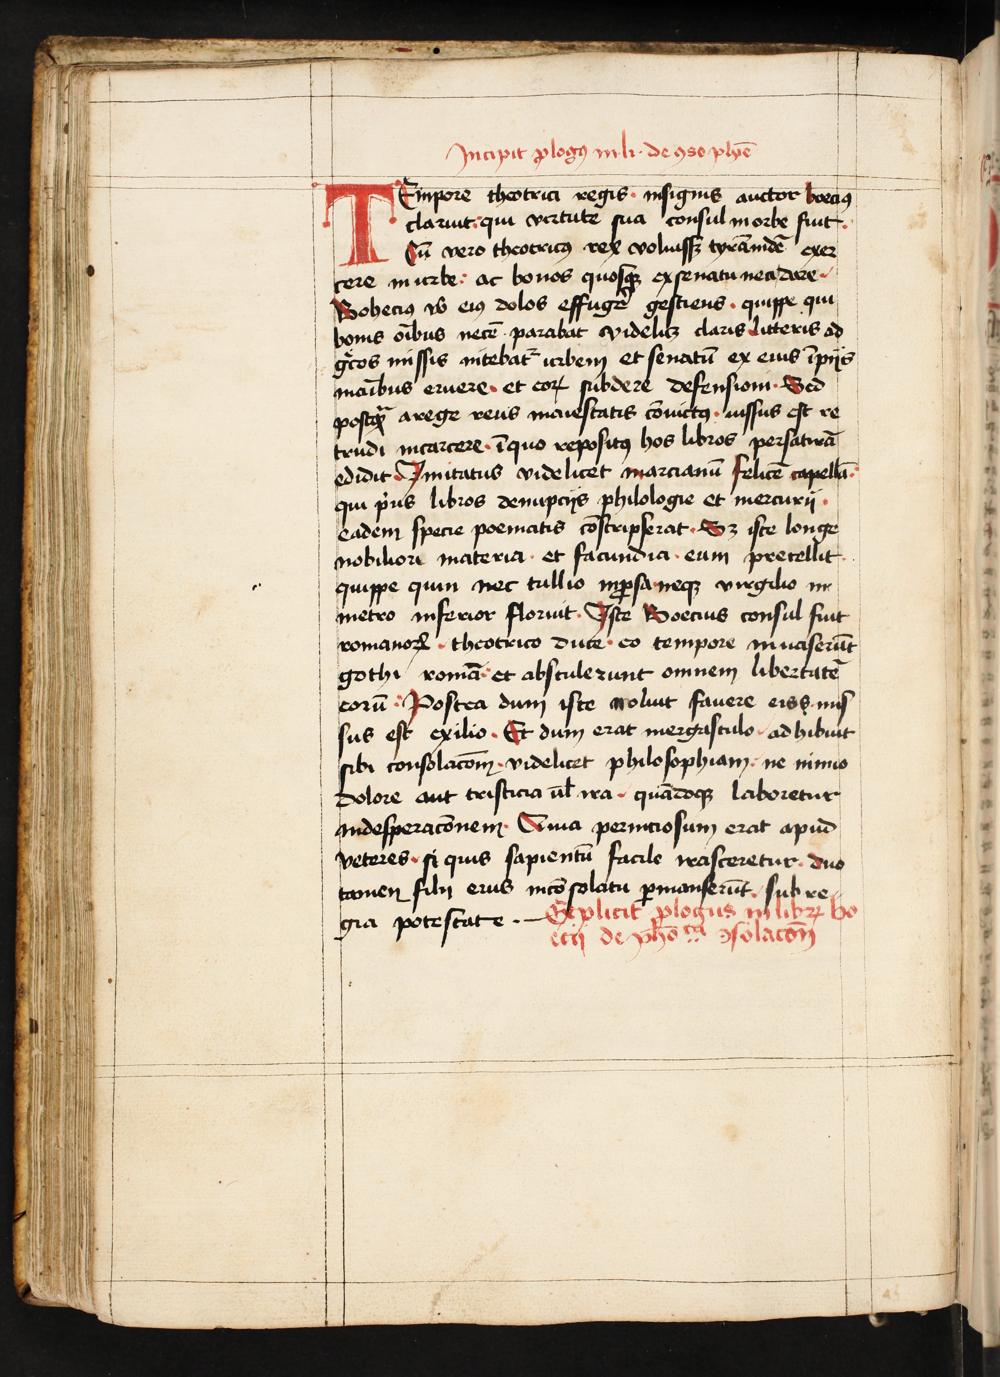 Incipit ꝓlogꝰ in li. de ꝯso phie
Tempore theotrici regis. insignis auctor boeciꝰ
claruit. qui virtute sua consul in orbe fuit.
Cū vero theotricꝰ rex voluissꝫ tyrānidē exer
cere in urbe: ac bonos quosqꝫ ex senatu neci dare.
Bohecius eiꝰ dolos effugē gestiens. quippe qui
bonis oībus necē parabat videlicꝫ claris litteris ad
gͨcos missis nitebat᷑ urbem et senatū ex eius īpijs
manibus eruere. et eoꝝ subdere defensioni. Sed
postqᷓ a rege reus maiestatis cōuictꝰ. iussus est re
trudi in carcere. ī quo repositꝰ hos libros per satirā
edidit Imitatus videlicet marcianū felicē capellā.
qui pͥus libros de nupcijs philologie et mercurij.
eadem specie poematis cōscripserat. Sꝫ iste longe
nobiliori materia. et facundia. eum precellit.
quippe quin nec tullio in ꝓsa neqꝫ virgilio in
metro inferior floruit. Iste Boecius consul fuit
romanoꝝ. theotrico duce. eo tempore inuaserūt
gothi romā. et abstulerunt omnem libertatē
eorū. Postea dum iste noluit fauere eis. mis
sus est exilio. Et dum erat in ergastulo. adhibuit
sibi consolacōem. videlicet philosophiam. ne nimio
dolore aut tristicia ul̄ ira. quādoqꝫ laboretur
in desperacōnem. Quia perniciosum erat apud
veteres. si quis sapientū facile irasceretur. duo
tamen filii eius incōsolati ꝑmanserūt. sub re
gia potestate.
Explicit ꝓlogus in libꝝ bo
ecij de phō ca ꝯsolacōm